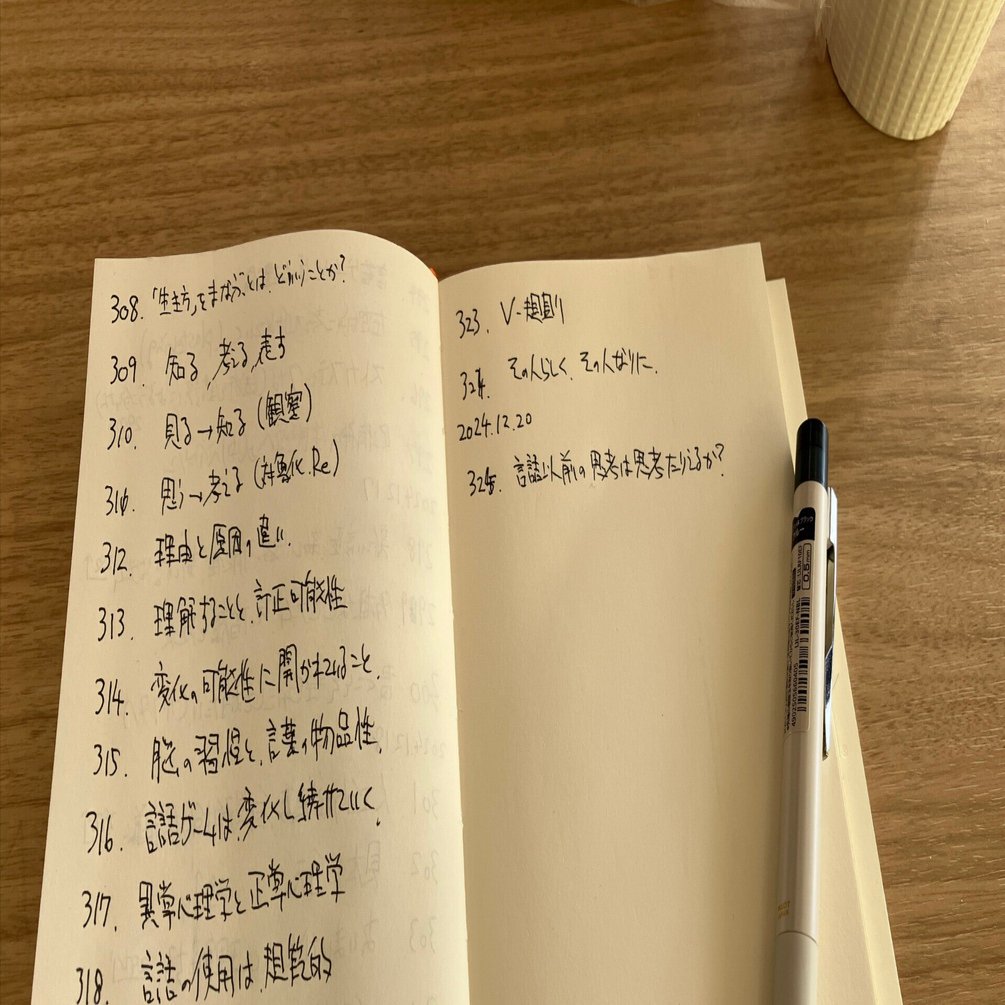 308. 「生き方」をまなぶとは、どういうことか?
309. 知る、考える、志す
310. 見る→知る(観察)
311. 思う→考える(対象化、Re)
312. 理由と原因の違い、
313. 理解することと、訂正可能性
314. 変化の可能性に開かれていること、
315. 脳の習慣と、言葉の物品性、
316. 言語ゲームは、変化し続けていく、
317. 異常心理学と正常心理学
318. 言語の使用は、規範的
323. V-規則
324. その人らしく、その人なりに、
2024.12.20
325. 言語以前の思考は思考たりえるか?
0.5mm
4902505660405